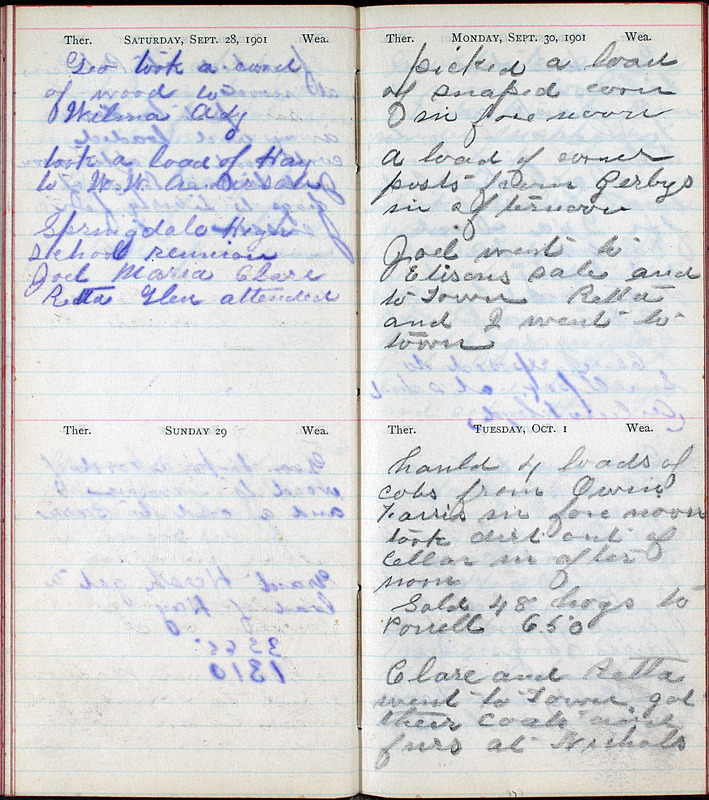 Ther. SATURDAY, SEPT. 28, 1901 Wea.
Geo took a cord
of wood to
Wilma Ady
took a load of Hay
to W. W. Anderson
Springdale High
School reunion
Joel Maria Clare
Retta Glen attended
Ther. SUNDAY 29 Wea.
Ther. MONDAY, SEPT. 30, 1901 Wea.
picked a load
of snaped corn
in fore noon
a load of corner
posts from Gerbys
in afternoon
Joel went to
Elisons sale and
to Town Retta
and I went to
town
Ther. TUESDAY, OCT. 1 Wea.
hauld 4 loads of
cobs from Owin
Farris in fore noon
took dirt out of
Cellar in after
noon
Sold 48 hogs to
Porrell 650
Clare and Retta
went to Town got
their coats and
furs at Nichols